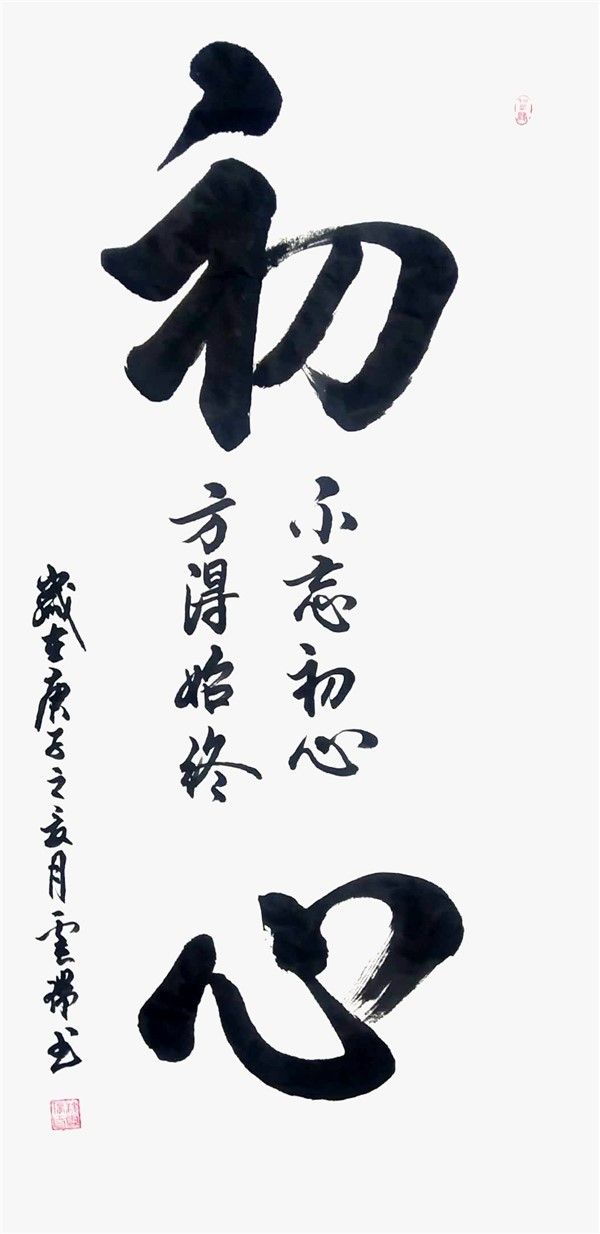 初心
不忘初心
方得始终
歲在庚子之亥月雲霈書